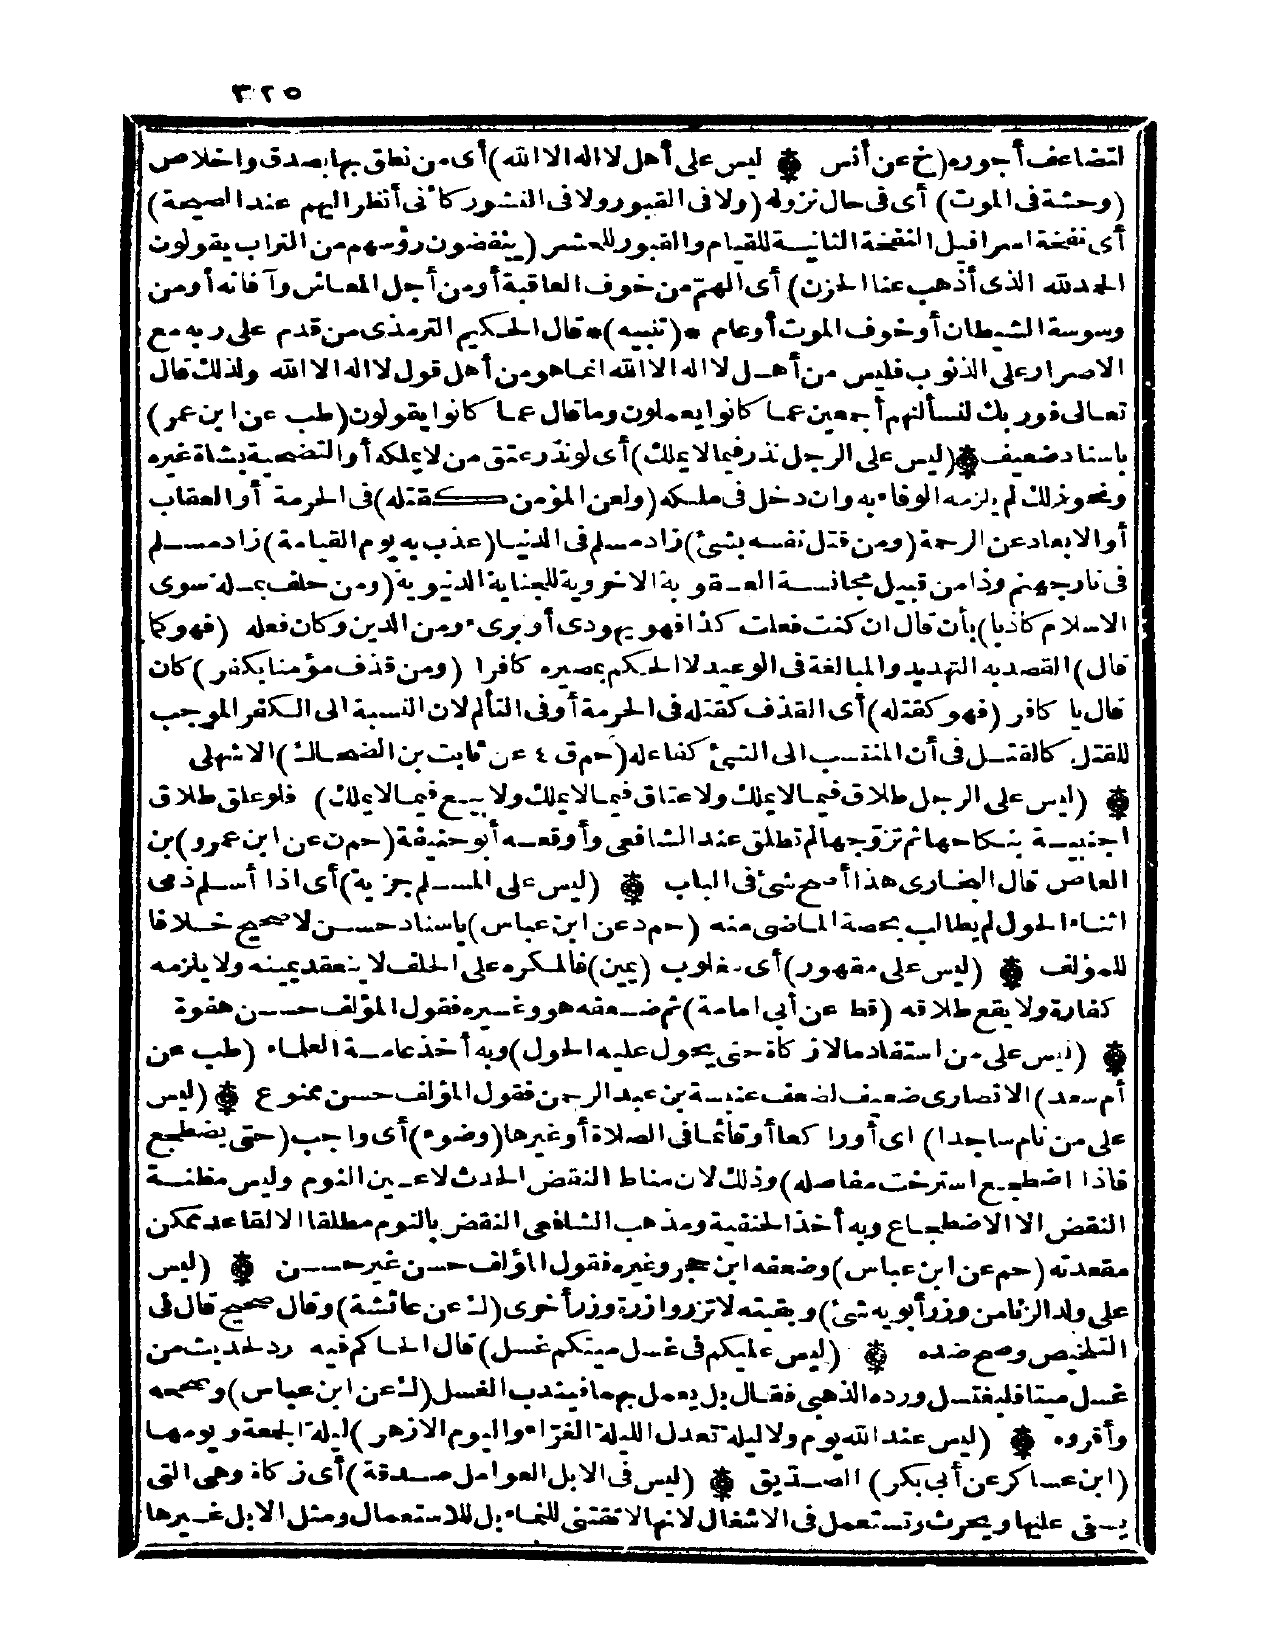 ٣٢٥
لتضاعف أجوره (خ عن أنس ۞ ليس على أهل لا اله الا الله) أى من نطق بها بصدق واخلاص
(وحشة فى الموت) أى فى حال نزوله (ولا فى القبور ولا فى النشور كأنى أنظر اليهم عند الصيحة)
أى نفخة اسرافيل النفخة الثانية للقيام والقبور للحشر (ينفضون رؤسهم من التراب يقولون
الحمد لله الذى أذهب عنا الحزن) أى الهم من خوف العاقبة أو من أجل المعاش وآفاته أو من
وسوسة الشيطان أو خوف الموت أو عام * (تنبيه) * قال الحكيم الترمذى من قدم على ربه مع
الاصرار على الذنوب فليس من أهل لا اله الا الله انما هو من أهل قول لا اله الا الله ولذلك قال
تعالى فوربك لنسألنهم أجمعين عما كانوا يعملون وما قال عما كانوا يقولون (طب عن ابن عمر)
باسناد ضعيف ۞ (ليس على الرجل نذر فيما لا يملك) أى لو نذر عتق من لا يملكه أو التضحية بشاة غيره
ونحو ذلك لم يلزمه الوفاء به وان دخل فى ملكه (ولعن المؤمن كقتله) فى الحرمة أو العقاب
أو الابعاد عن الرحمة (ومن قتل نفسه بشئ) زاد مسلم فى الدنيا (عذب به يوم القيامة) زاد مسلم
فى نار جهنم وذا من قبيل مجانسة العقوبة الاخروية للجناية الدنيوية (ومن حلف بملة سوى
الاسلام كاذبا) بأن قال ان كنت فعلت كذا فهو يهودى أو برىء من الدين وكان فعله (فهو كما
قال) القصد به التهديد والمبالغة فى الوعيد لا الحكم بمصيره كافرا (ومن قذف مؤمنا بكفر) كان
قال يا كافر (فهو كقتله) أى القذف كقتله فى الحرمة أو فى التألم لان النسبة الى الكفر الموجب
للقتل كالقتل فى أن المنتسب الى الشئ كفاعله (حم ق ٤ عن ثابت بن الضحاك) الاشهلى
۞ (ليس على الرجل طلاق فيما لا يملك ولا عتاق فيما لا يملك ولا بيع فيما لا يملك) فلو علق طلاق
اجنبية بنكاحها ثم تزوجها لم تطلق عند الشافعى وأوقعه أبو حنيفة (حم ن عن ابن عمرو) بن
العاص قال البخارى هذا أصح شئ فى الباب ۞ (ليس على المسلم جزية) أى اذا أسلم ذمى
اثناء الحول لم يطالب بحصة الماضى منه (حم د عن ابن عباس) باسناد حسن لا صحيح خلافا
للمؤلف ۞ (ليس على مقهور) أى مغلوب (يمين) فالمكره على الحلف لا ينعقد يمينه ولا يلزمه
كفارة ولا يقع طلاقه (قط عن أبى امامة) ثم ضعفه هو وغيره فقول المؤلف حسن هفوة
۞ (ليس على من استفاد مالا زكاة حتى يحول عليه الحول) وبه أخذ عامة العلماء (طب عن
أم سعد) الانصارى ضعيف لضعف عنبسة بن عبد الرحمن فقول المؤلف حسن ممنوع ۞ (ليس
على من نام ساجدا) اى أو راكعا أو قائما فى الصلاة أو غيرها (وضوء) أى واجب (حتى يضطجع
فاذا اضطجع استرخت مفاصله) وذلك لان مناط النقض الحدث لا عين النوم وليس مظنة
النقض الا الاضطجاع وبه أخذ الحنفية ومذهب الشافعى النقض بالنوم مطلقا الا لقاعد ممكن
مقعدته (حم عن ابن عباس) وضعفه ابن حجر وغيره فقول المؤلف حسن غير حسن ۞ (ليس
على ولد الزنا من وزر أبويه شئ) وبقيته لا تزر وازرة وزر أخرى (ك عن عائشة) وقال صحيح قال فى
التلخيص وصح ضده ۞ (ليس عليكم فى غسل ميتكم غسل) قال الحاكم فيه رد لحديث من
غسل ميتا فليغتسل ورده الذهبى فقال بل يعمل بهما فيندب الغسل (ك عن ابن عباس) وصححه
وأقروه ۞ (ليس عند الله يوم ولا ليلة تعدل الليلة الغراء واليوم الازهر) ليلة الجمعة ويومها
(ابن عساكر عن أبى بكر) الصديق ۞ (ليس فى الابل العوامل صدقة) أى زكاة وهى التى
يسقى عليها ويحرث وتستعمل فى الاشغال لانها لا تقتنى للنماء بل للاستعمال ومثل الابل غيرها